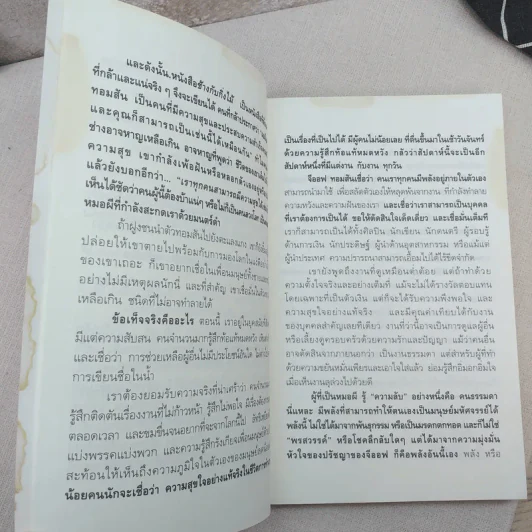 และดังนั้น.หนังสือช้างกับกิ่งไม้ เป็นหนังสือ
ที่กล้าและแน่จริง ๆ จึงจะเขียนได้ คนที่กล้าประกาศ
ทอมสัน เป็นคนที่มีความสุขและประสบความสำเร็จ
และคุณก็สามารถเป็นเช่นนี้ได้เหมือนกัน"
ช่างอาจหาญเหลือเกิน อาจหาญที่พูดว่า ชีวิต
ความสุข เขากำลังเพ้อฝันหรือหลอกลวง
แล้วยังบอกอีกว่า... "เราทุกคนสามารถมีความสุขได้
เห็นได้ชัดว่าคนผู้นี้ต้องบ้าแน่ๆ หรือไม่ก็เป็น
หมอผีที่กำลังสะกดเราด้วยมนตร์ดำ
ถ้าฝูงชนนำตัวทอมสันไปยังตะแลงแกง
ปล่อยให้เขาตายไปพร้อมกับการมองโลกในแง่ดี
ของเขาเถอะ ก็เขาอยากเชื่อในเพื่อนมนุษย์
อย่างไม่มีเหตุผลนักนี่ และที่สำคัญ เขาเชื่อมั่นในตัวเอง
เหลือเกิน ชนิดที่ไม่อาจทำลายได้
ข้อเท็จจริงคืออะไร ตอนนี้ เราอยู่ในยุคสมัย
มีแต่ความสับสน คนจำนวนมากรู้สึกท้อแท้หมดหวัง
และเชื่อว่า การช่วยเหลือผู้อื่นไม่มีประโยชน์อันใด
การเขียนชื่อในน้ำ
เราต้องยอมรับความจริงที่น่าเศร้าว่า คนจำนวน
รู้สึกติดตันเรื่องงานที่ไม่ก้าวหน้า รู้สึกไม่พอใจ
ตลอดเวลา และขมขื่นจนอยากที่จะจากโลกนี้ไป
แบ่งพรรคแบ่งพวก และความรู้สึกรังเกียจเพื่อนมนุษย์
สะท้อนให้เห็นถึงความภูมิใจในตัวเองของมนุษย์
น้อยคนนักจะเชื่อว่า ความสุขใจอย่างแท้จริงในชีวิต
เป็นเรื่องที่เป็นไปได้ มีผู้คนไม่น้อยเลย ที่ตื่นขึ้นมาในเช้าวันจันทร์
ด้วยความรู้สึกท้อแท้หมดหวัง กลัวว่าสัปดาห์นี้จะเป็นอีก
สัปดาห์หนึ่งที่มีแต่งาน กับงาน ทุกวัน
จีออฟ ทอมสันเชื่อว่า คนเราทุกคนมีพลังอยู่ภายในตัวเอง
สามารถนำมาใช้ เพื่อสลัดตัวเองให้หลุดพ้นจากงาน ที่กำลังทำลาย
ความหวังและความฝันของเรา และเชื่อว่าเราสามารถเป็นบุคคล
ที่เราต้องการเป็นได้ ขอให้ตัดสินใจเด็ดเดี่ยว และเชื่อมั่นเต็มที่
เราก็สามารถเป็นได้ทั้งศิลปิน นักเขียน นักดนตรี ผู้รอบรู้
ด้านการเงิน นักประดิษฐ์ ผู้นำด้านอุตสาหกรรม หรือแม้แต่
ผู้นำประเทศ ความปรารถนาสามารถเอื้อมไปได้ไร้ขีดจำกัด
เขายังพูดถึงงานที่ดูเหมือนต่ำต้อย แต่ถ้าทำด้วย
ความตั้งใจจริงและอย่างเต็มที่ แม้จะไม่ได้รางวัลตอบแทน
โดยเฉพาะที่เป็นตัวเงิน แต่ก็จะได้รับความพึงพอใจ และ
ความสุขใจอย่างแท้จริง และมีคุณค่าเทียบได้กับงาน
ของบุคคลสำคัญเลยทีเดียว งานที่ว่านี้อาจเป็นการดูแลผู้อื่น
หรือเลี้ยงดูครอบครัวด้วยความรักและปัญญา แม้ว่าคนอื่น
อาจตัดสินจากภายนอกว่า เป็นงานธรรมดา แต่สำหรับผู้ที่ทำ
ด้วยความขยันหมั่นเพียรและเอาใจใส่แล้ว ย่อมรู้สึกอิ่มอกอิ่มใจ
เมื่อเห็นงานลุล่วงไปด้วยดี
ผู้ที่เป็นหมอผี รู้ "ความลับ" อย่างหนึ่งคือ คนธรรมดา
นี่แหละ มีพลังที่สามารถทำให้ตนเองเป็นมนุษย์มหัศจรรย์ได้
พลังนี้ ไม่ใช่ได้มาจากพันธุกรรม หรือเป็นมรดกตกทอด และก็ไม่ใช่
"พรสวรรค์" หรือโชคลึกลับใดๆ แต่ได้มาจากความมุ่งมั่น
หัวใจของปรัชญาของจีออฟ ก็คือพลังอันนี้เอง พลัง หรือ